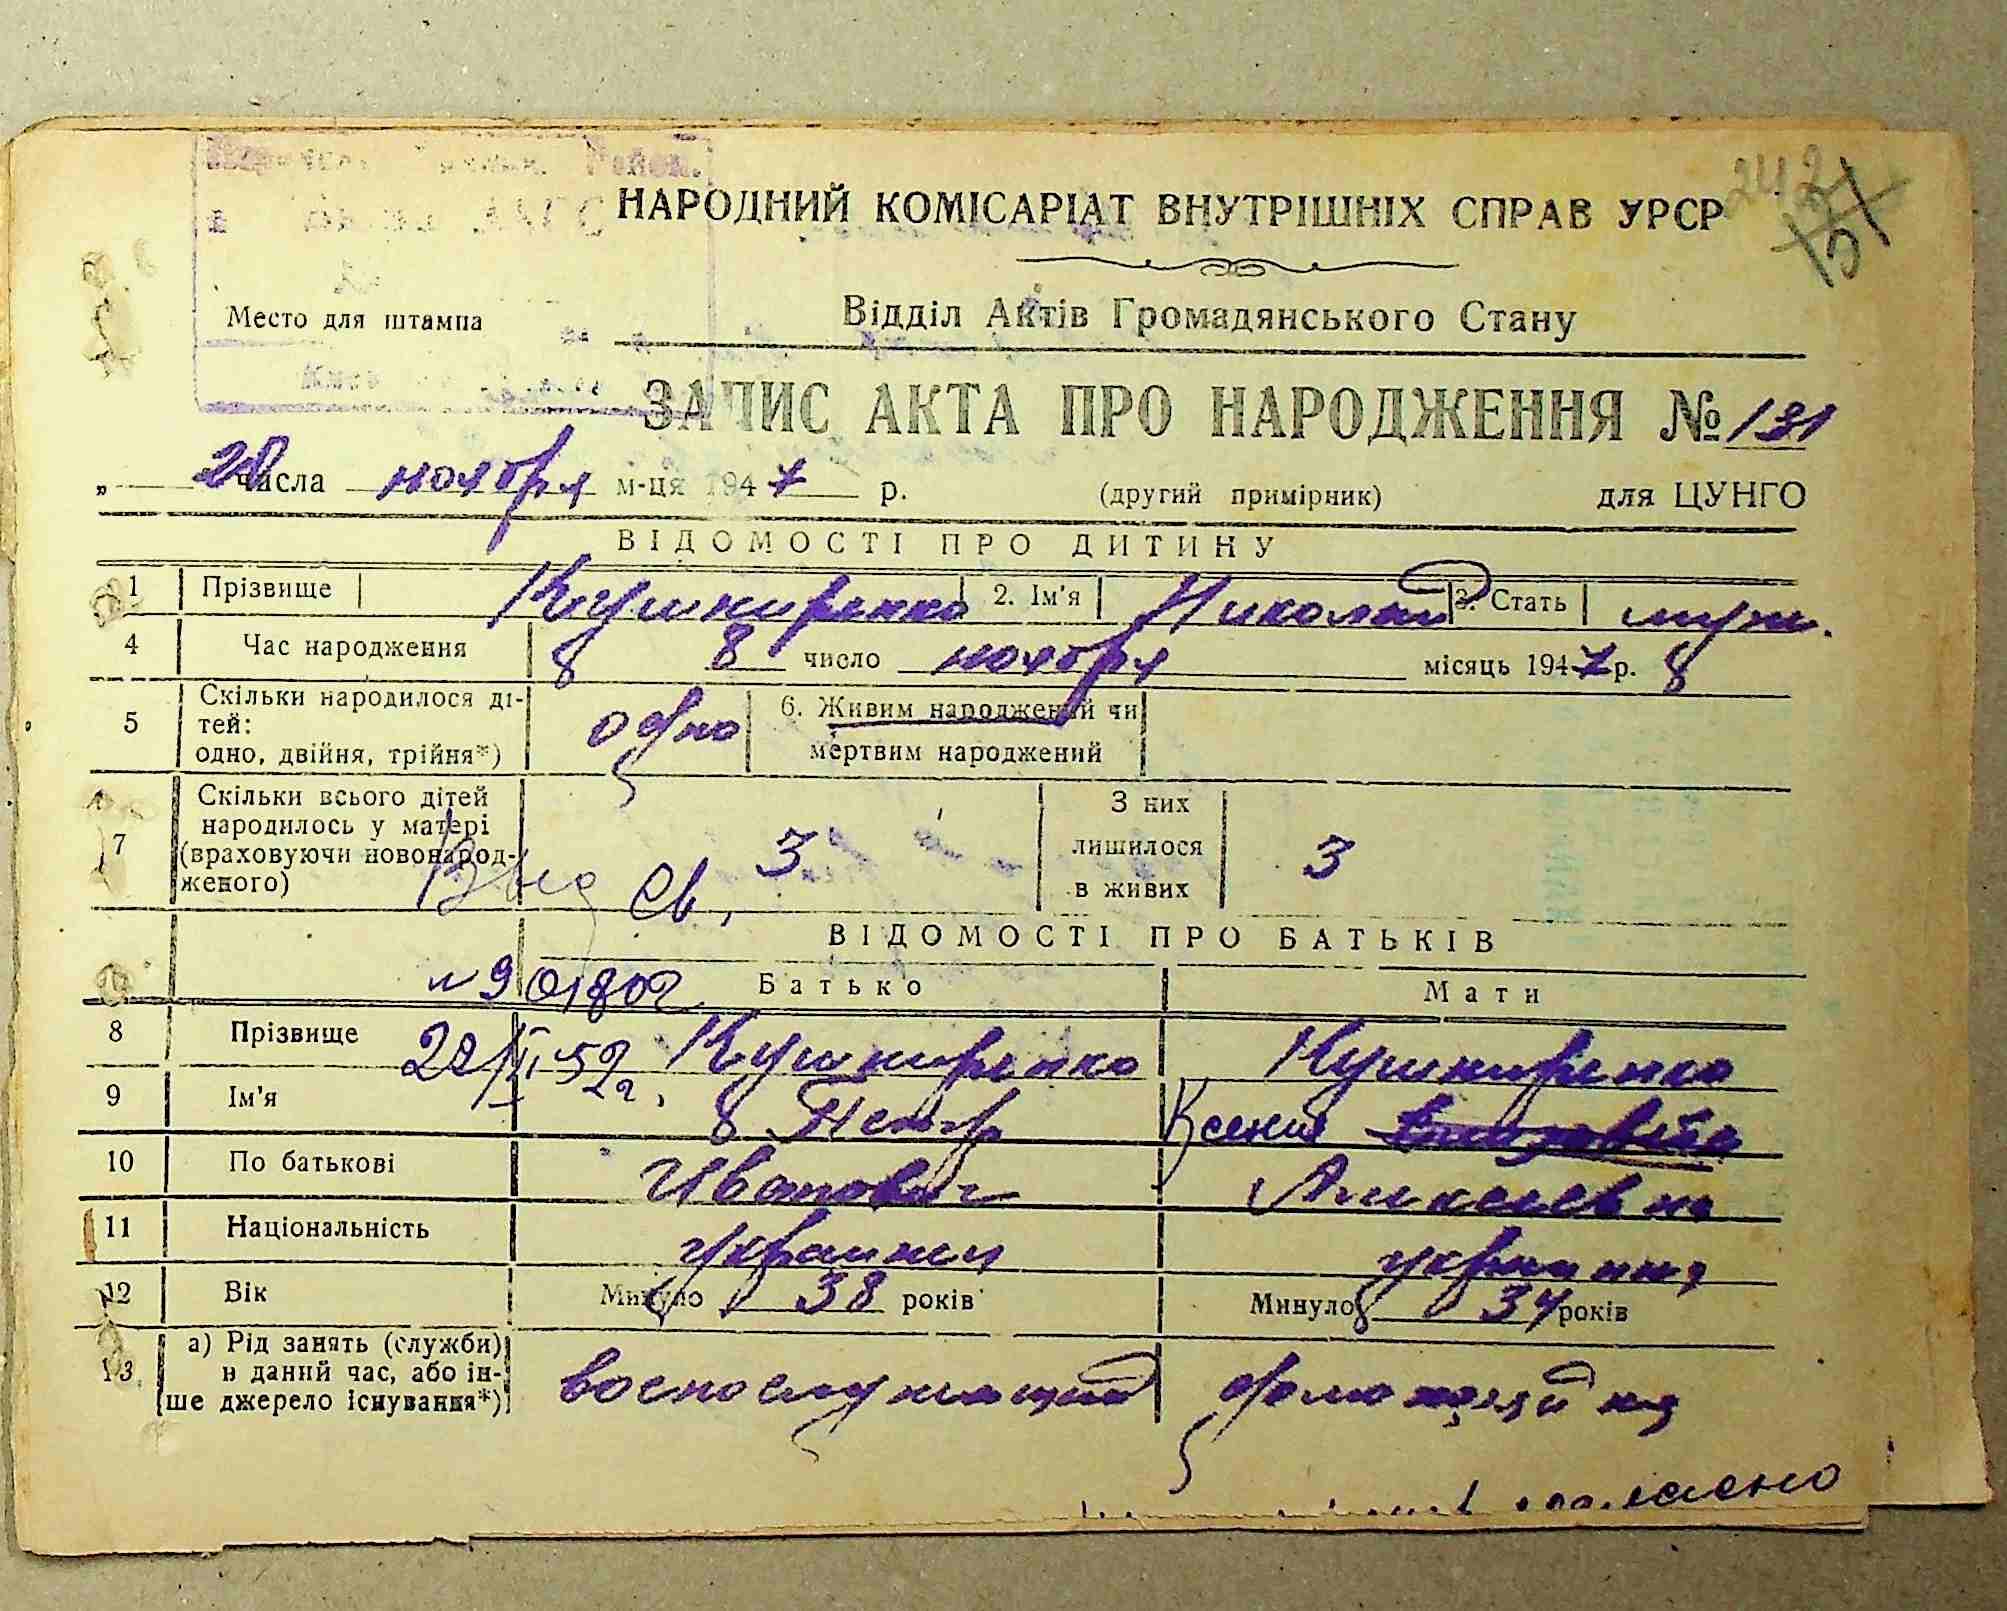 242
НАРОДНИЙ КОМІСАРІАТ ВНУТРІШНІХ СПРАВ УРСР
Место для штампа
Відділ Актів Громадянського Стану
ЗАПИС АКТА ПРО НАРОДЖЕННЯ № 131
„ 28 числа ноября м-ця 1947 р. (другий примірник) для ЦУНГО
ВІДОМОСТІ ПРО ДИТИНУ
1 Прізвище Кушниренко 2. Ім'я Николай 3. Стать муж.
4 Час народження 8 число ноября місяць 1947 р.
5 Скільки народилося ді-
тей:
одно, двійня, трійня*) одно
6. Живим народжений чи
мертвим народжений
7 Скільки всього дітей
народилось у матері
(враховуючи новонарод-
женого) 3
З них
лишилося
в живих 3
Св,
ВІДОМОСТІ ПРО БАТЬКІВ
Батько Мати
8 Прізвище Кушниренко Кушниренко
9 Ім'я Петр Ксения
10 По батькові Иванович Алексеевна
11 Національність украинец украинка
12 Вік Минуло 38 років Минуло 34 років
13 а) Рід занять (служби)
в даний час, або ін-
ше джерело існування*) военослужащий домохозяйка